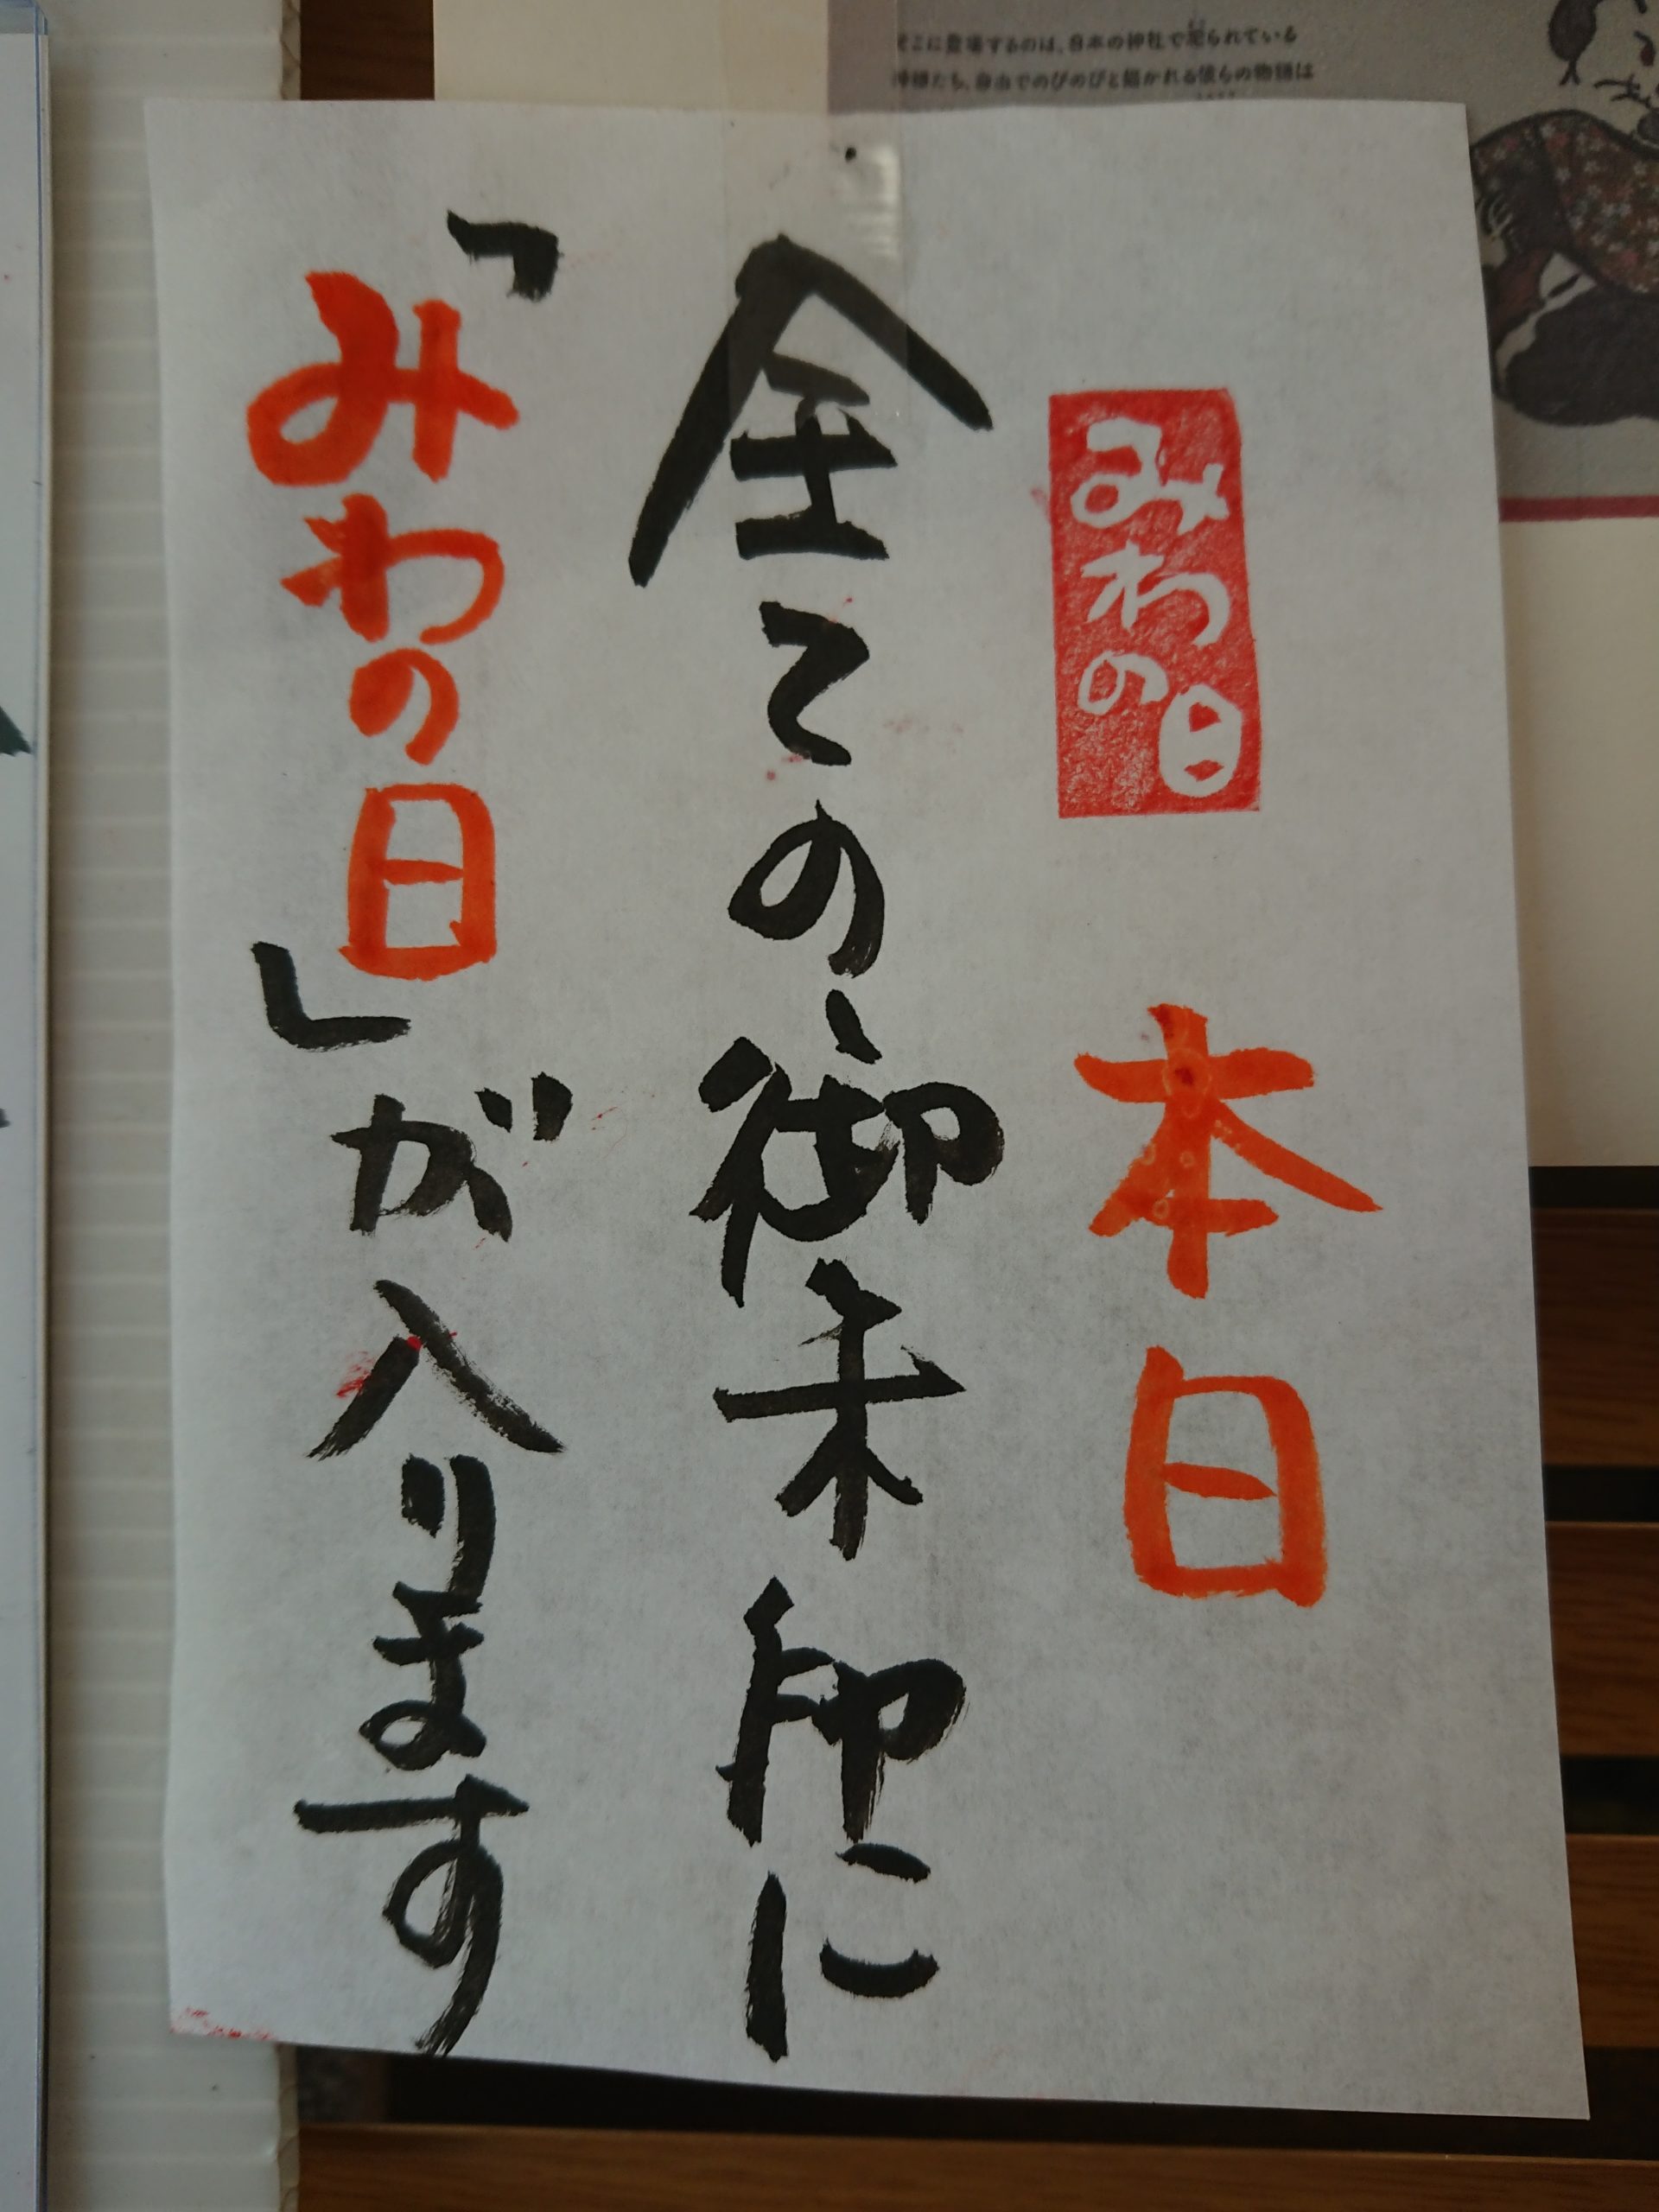 みわの日
本日
全ての御朱印に
「みわの日」が入ります
そこに登場するのは、日本の神社で祀られている
神様たち。自由でのびのびと描かれる彼らの物語は